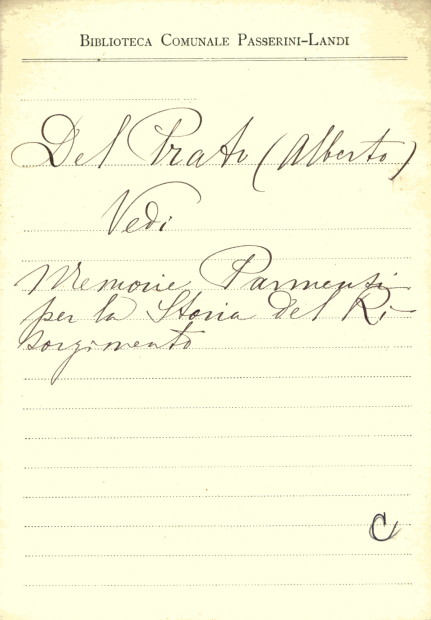 BIBLIOTECA COMUNALE PASSERINI-LANDI
Del Prato (Alberto)
Vedi
Memorie Parmensi
per la Storia del Ri-
sorgimento
C